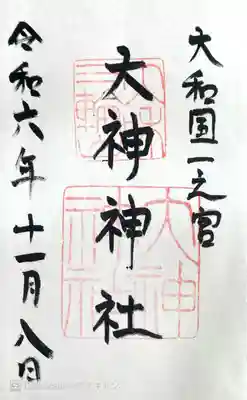 大和国一之宮
大神神社
令和六年十一月八日